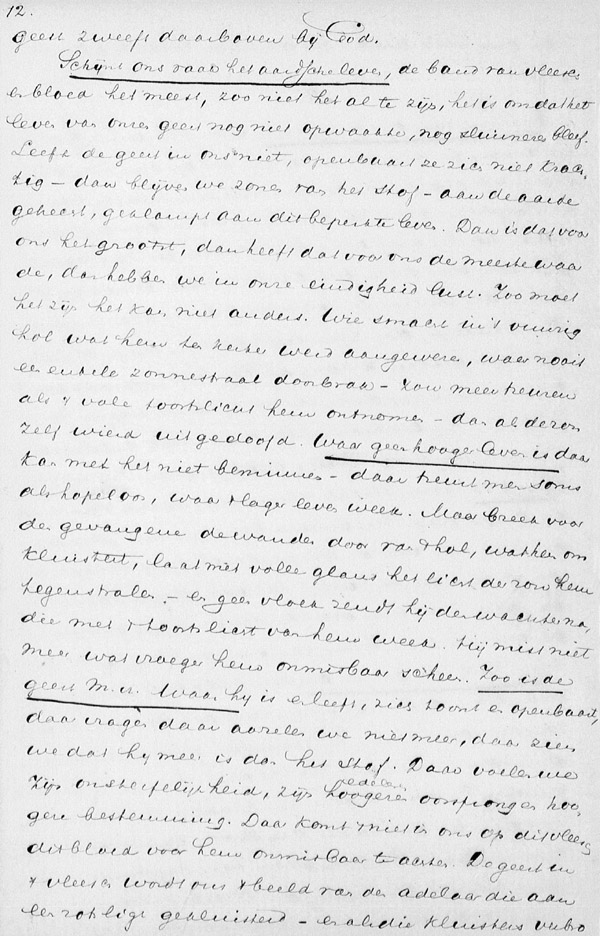 12.
geest zweeft daarboven bij God.
Schijnt ons vaak het aardsche leven, de band van vleesch
en bloed het meest, zoo niet het al te zijn, het is omdat het
leven van onzen geest nog niet opwaakte, nog sluimeren bleef.
Leeft de geest in ons niet, openbaart ze zich niet krach
tig – dan blijven we zonen van het stof – aan de aarde
gehecht, geklampt aan dit beperkte leven. Dan is dat voor
ons het grootst, dan heeft dat voor ons de meeste waar
de, dan hebben we in onze eindigheid lust. Zoo moet
het zijn het kan niet anders. Wie smacht in 't vunzig
hol wat hem ten kerker werd aangewezen, waar nooit
een enkele zonnestraal doorbrak – zou meer treuren
als 't vale toortslicht hem ontnomen – dan als de zon
zelf wierd uitgedoofd. Waar geen hooger leven is daar
kan men het niet beminnen – daar treurt men soms
als hopeloos, waar 't lager leven week. Maar breek voor
den gevangene de wanden door van 't hol, wat hem om
kluistert, laat met volle glans het licht der zon hem
tegenstralen – en geen vloek zendt hij den wachter na,
die met 't toortslicht van hem week. Hij mist niet
meer wat vroeger hem onmisbaar scheen. Zoo is de
geest M.H. Waar hij is en leeft, zich toont en openbaart,
daar vragen daar aarzelen we niet meer, daar zien
we dat hij meer is dan het stof. Daar voelen we
edelen
zijn onsterfelijkheid, zijn hoogeren oorsprong en hoo
gere bestemming. Daar komt niet in ons op dit vleesch
dit bloed voor hem onmisbaar te achten. De geest in
't vleesch wordt ons 't beeld van den adelaar die aan
een rots ligt gekluisterd – en als die kluisters verbro